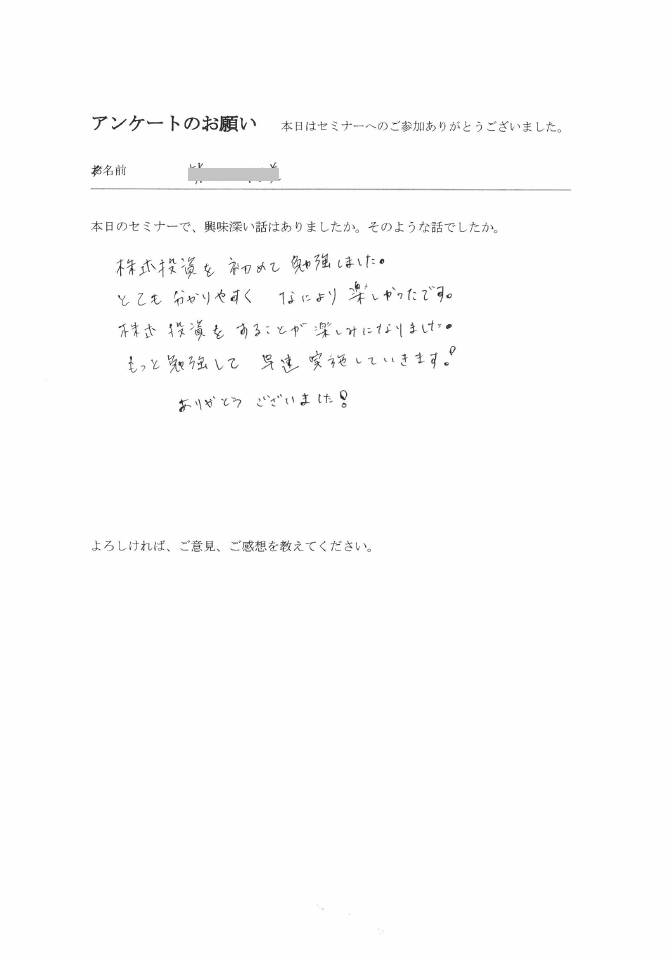 アンケートのお願い 本日はセミナーへのご参加ありがとうございました。
お名前
本日のセミナーで、興味深い話はありましたか。そのような話でしたか。
株式投資を 初めて 勉強しました。
とても 分かりやすく なにより 楽しかったです。
株式 投資を することが 楽しみになりました。
もっと 勉強して 早速 実施していきます!
ありがとう ございました!
よろしければ、ご意見、ご感想を教えてください。